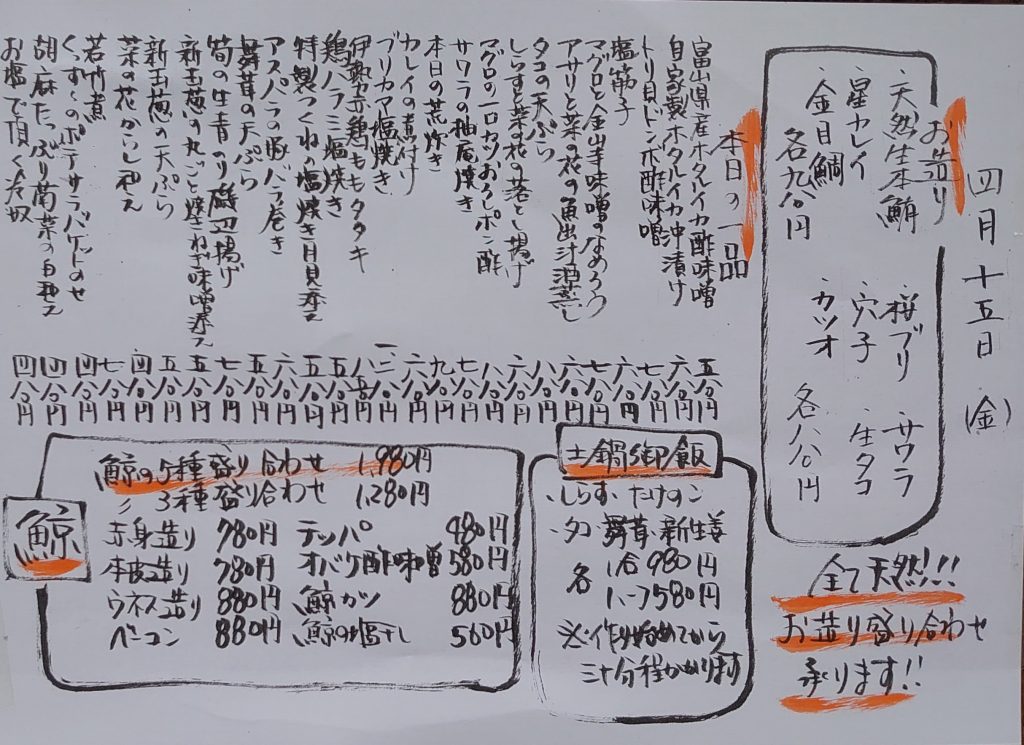 四月十五日(金)
お造り
・天然生本鮪 ・桜ブリ ・サワラ
・星カレイ ・穴子 ・生タコ
・金目鯛 ・カツオ
各九八〇円 各八八〇円
全て天然!!!
お造り盛り合わせ
承ります!!
本日の一品
富山県産ホタルイカ酢味噌 五八〇円
自家製ホタルイカ沖漬け 六八〇円
トリ貝トンボ酢味噌 七八〇円
塩筋子 六八〇円
マグロと金山寺味噌のなめろう 七八〇円
アサリと菜の花の魚出汁酒蒸し 六八〇円
タコの天ぷら 八八〇円
しらすと菜の花の落とし揚げ 六八〇円
マグロの一口カツおろしポン酢 八八〇円
サワラの柚庵焼き 七八〇円
本日の荒炊き 九八〇円
カレイの煮付け
ブリカマ塩焼き
伊勢赤鶏ももタタキ
鶏ハラミ塩焼き
特製つくねの塩焼き月見添え
アスパラの豚バラ巻き
舞茸の天ぷら
筍の生青のり磯辺揚げ
新玉葱の丸ごと焼きねぎ味噌添え
新玉葱の天ぷら
菜の花からし和え
若竹煮
くんずりのポテサラバゲットのせ
胡麻たっぷり菊菜の白和え
お塩で頂く冷奴 四八〇円
土鍋御飯
・しらす・たけのこ
・タコ・舞茸・新生姜
各 1合980円
1.5 1,580円
※作り始めてから
三十分程かかります
鯨
鯨の5種盛り合わせ 1,980円
〃 3種盛り合わせ 1,280円
赤身造り 780円 テッパ 480円
本皮造り 780円 オバケ酢味噌 580円
ウネス造り 880円 鯨カツ 880円
ベーコン 880円 鯨の塩干し 560円